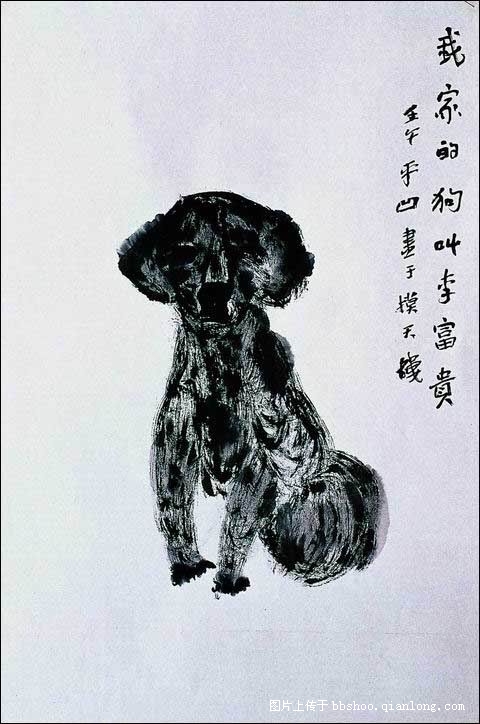 我家的狗叫李富貴
壬午 平凹畫于摸天磯
图片上传于 bbshoo.qianlong.com